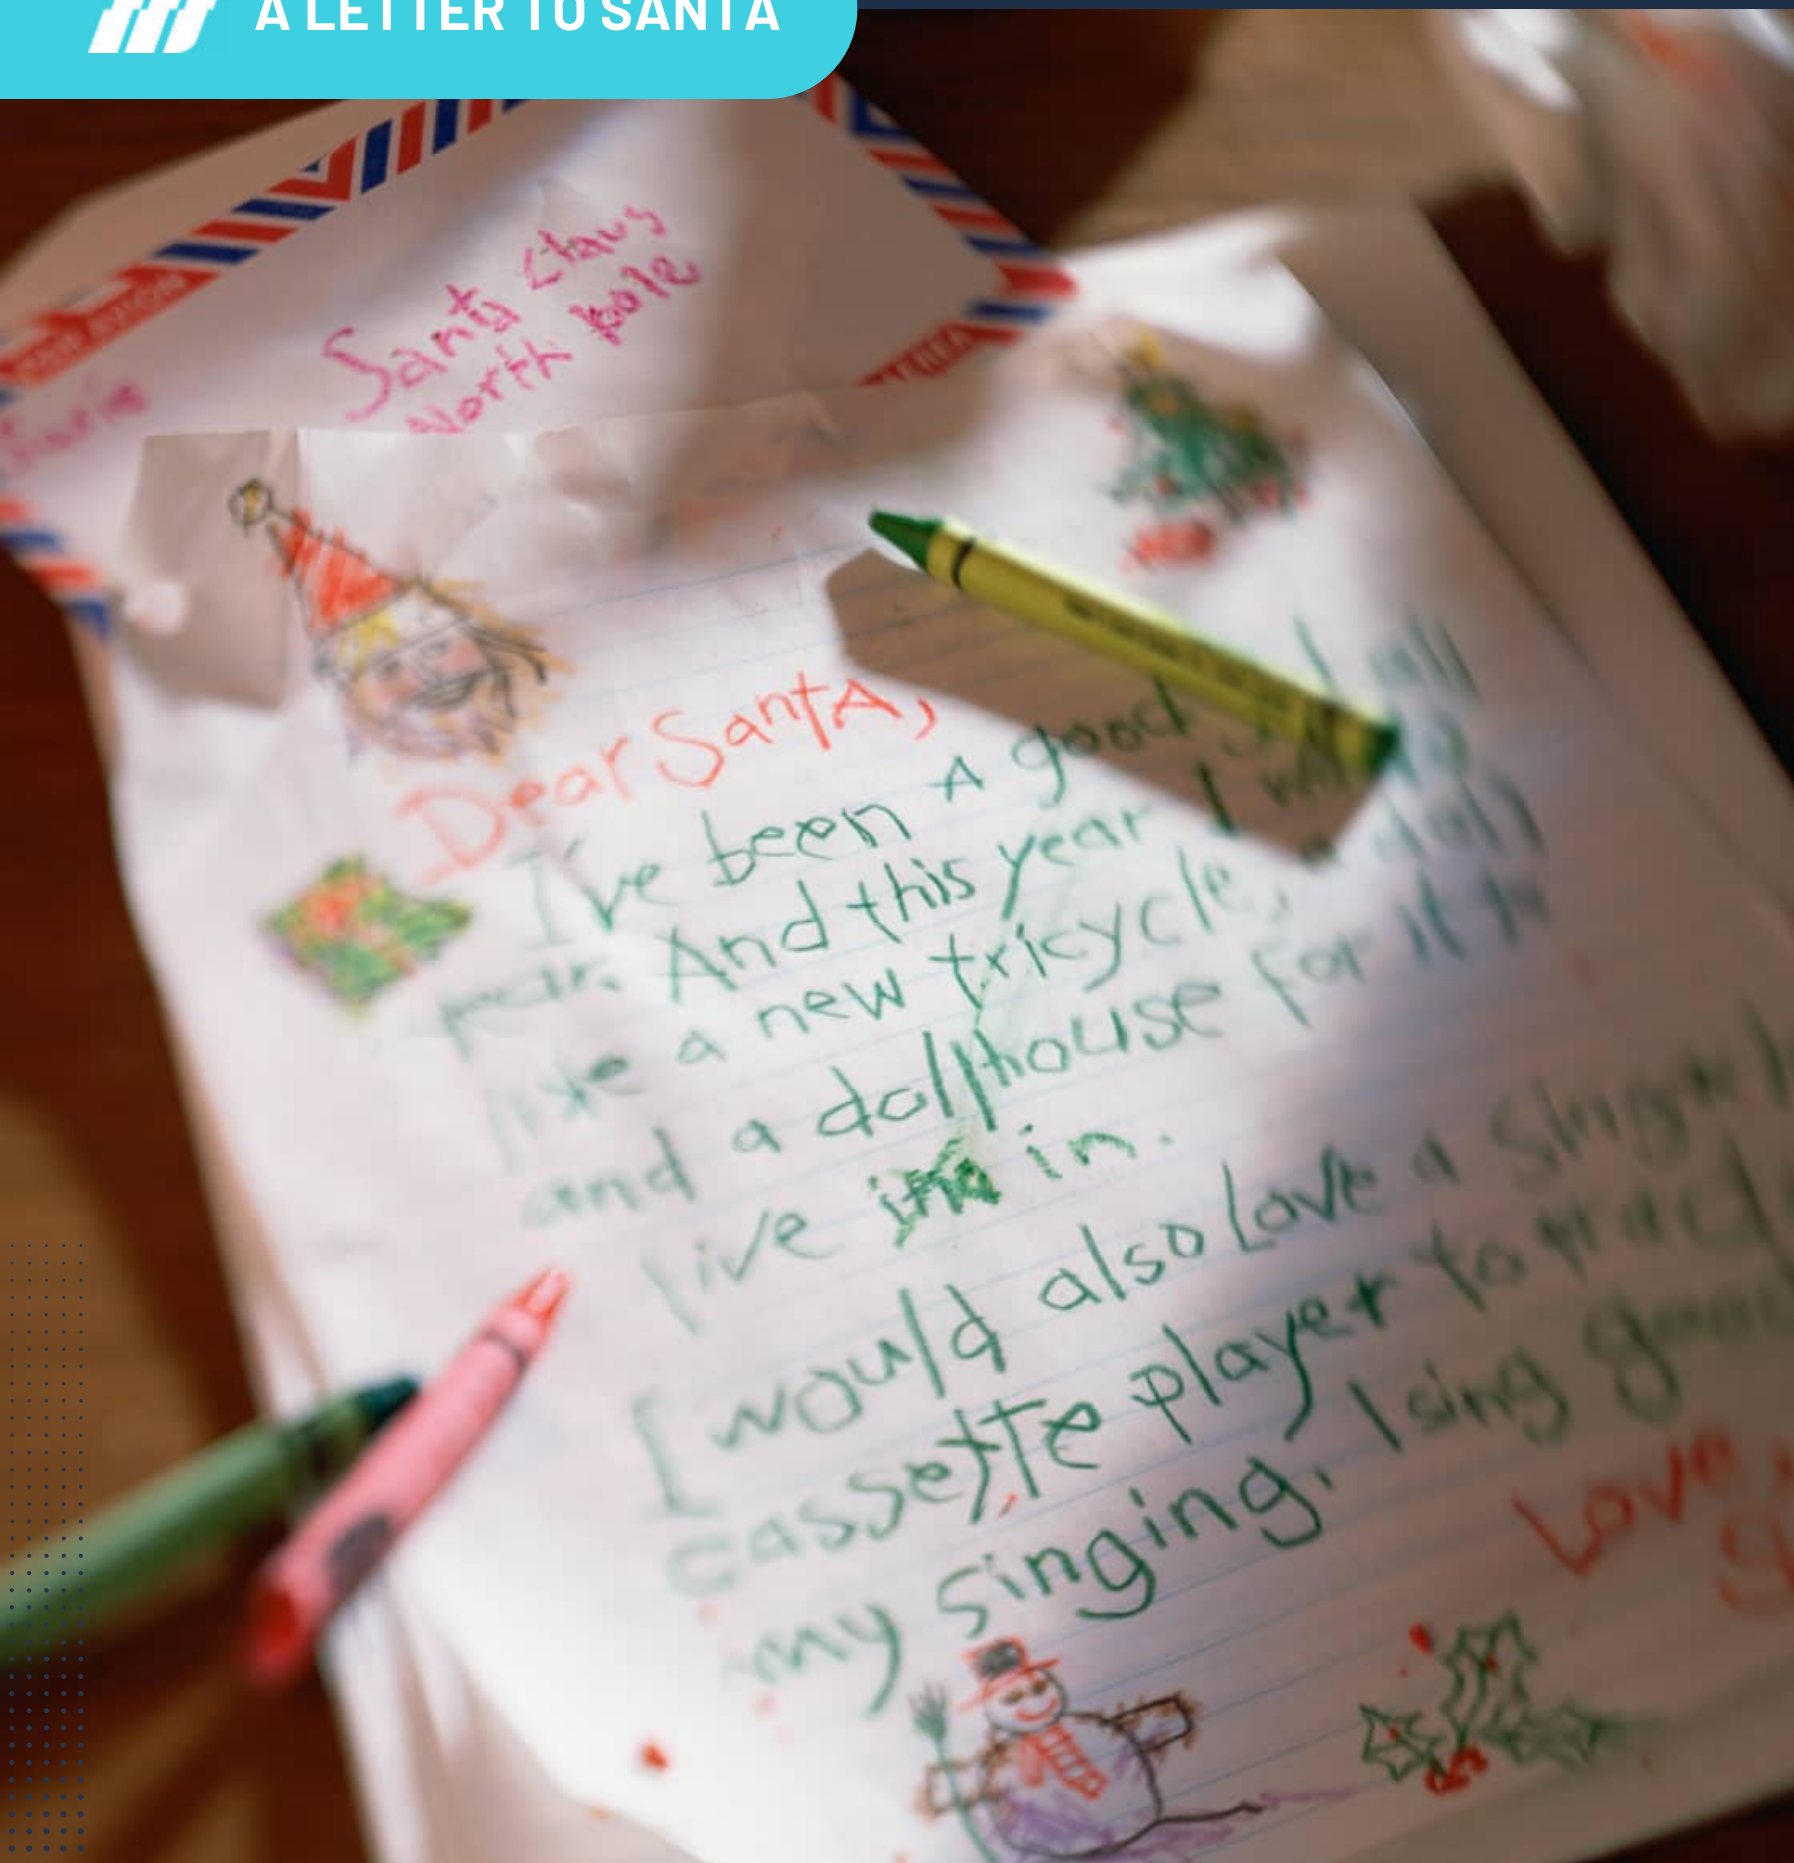 A LETTER TO SANTA
Santa Claus
North pole
Dear Santa,
I've been A good all
year. And this year I
like a new tricycle, a doll
and a dollhouse for it to
live in.
I would also Love a
cassette player to
my singing. I sing good
Love,